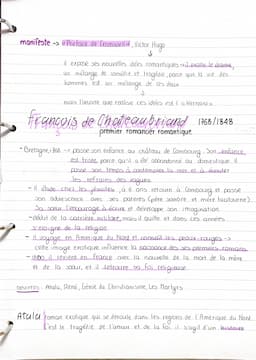 manifeste → « Préface de Cromwell », Victor Hugo
↓
il expose ses nouvelles idées romantiques → il exalte le drame,
un mélange de comédie et tragédie, parce que la vie des
hommes est un mélange de ces deux
↓
mais l'œuvre que réalise ces idées est « Hernani »
François de Chateaubriand 1768/1848
premier romancier romantique
• Bretagne, 1768 → passe son enfance au château de Combourg. Son enfance
est triste, parce qu'il a été abandonné au domestique. Il
passe son temps à contempler la mer et à écouter
les refrains des vagues
- il étude chez les , à 16 ans retourn à Combourg et passe
son adolescence avec ses parents (père sombre et mère pieuse).
Sa sœur l'encourage à écrire et développe son imagination
- début de la carrière militaire, mais il quitte et dans ces années
s'éloigne de la religion
- il voyage en Amérique du Nord et connaît les peaux-rouges →
cette image exotique influence la naissance des ses premiers romans
- 1800 il revient en France avec la nouvelle de la mort de la mère
et de la sœur, et il retrouve sa foi religieuse
oeuvres: Atala, René, Génie du Christianisme, Les Martyrs
Atala: roman exotique qui se déroule dans les régions de l'Amérique du Nord.
C'est la tragédie de l'amour et de la foi. Il s'agit d'un